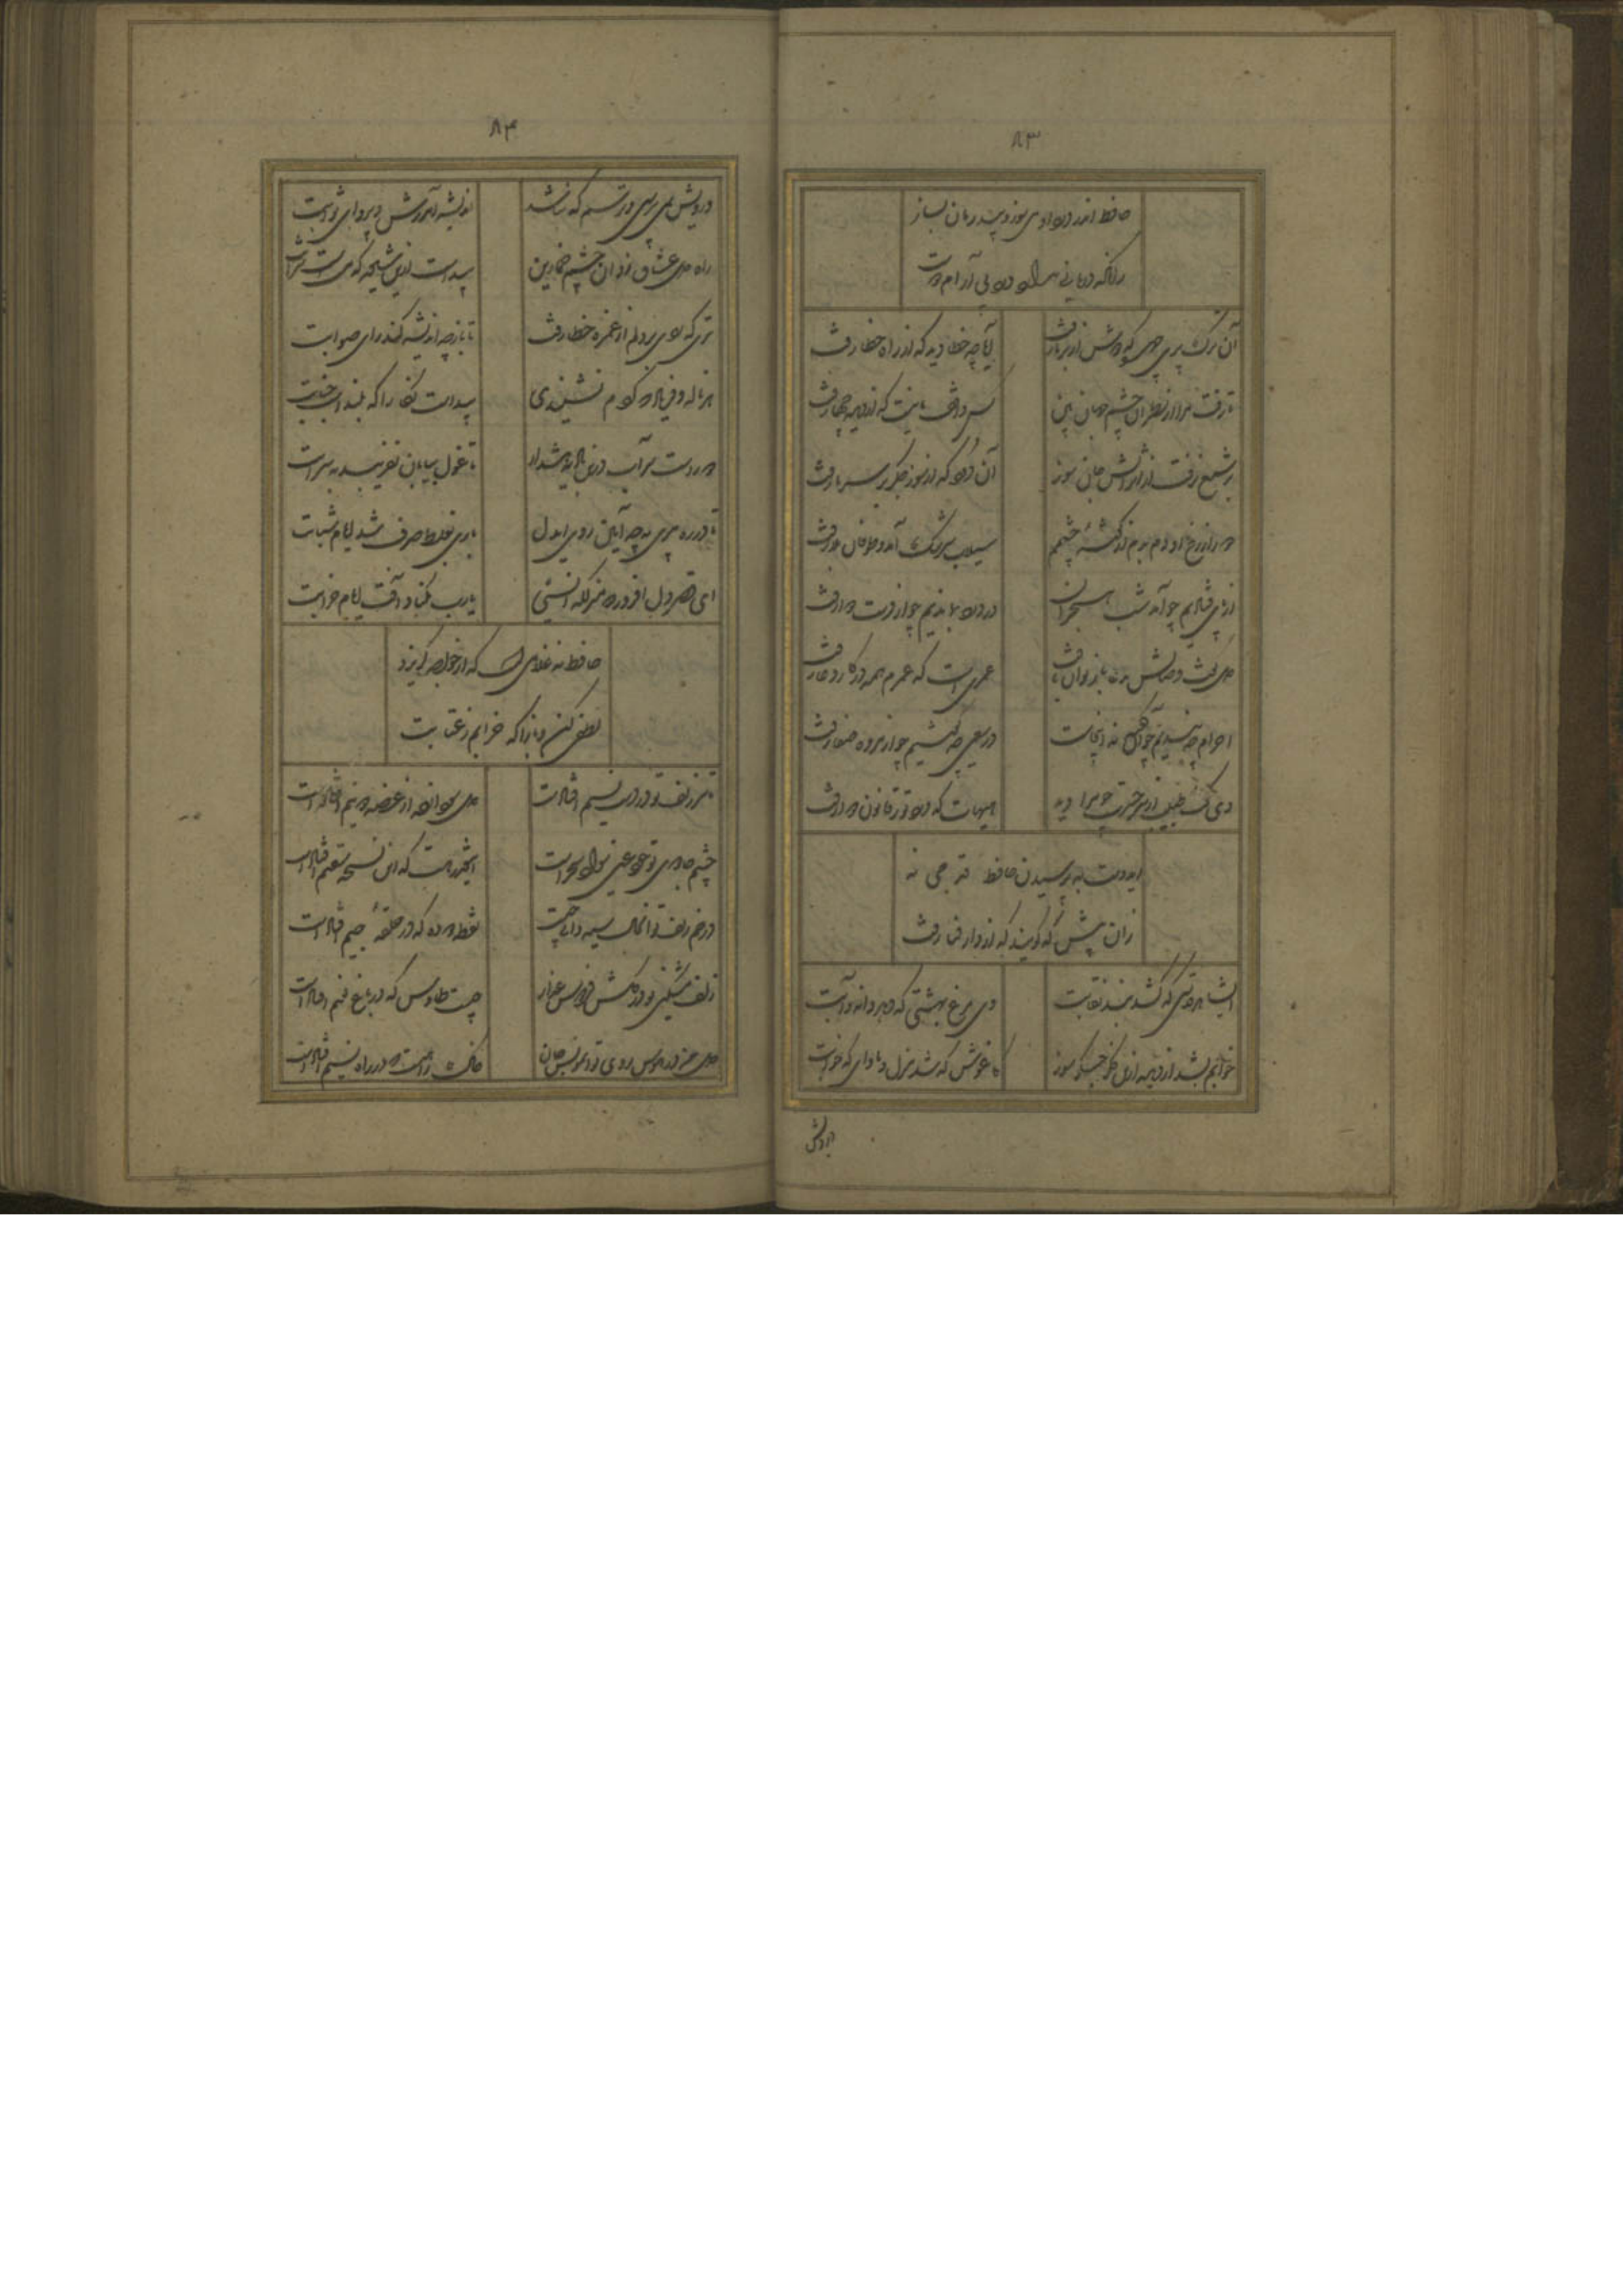 ۸۳
حافظ اندر درد او میسوز و بی درمان بساز
زانکه درمانی ندارد درد بی آرام دوست
آن ترک پری چهره که دوش از بر ما رفت
آیا چه خطا دید که از راه خطا رفت
تا رفت مرا از نظر آن چشم جهان بین
کس واقف ما نیست که از دیده چها رفت
بر شمع نرفت از اثر آتش جان سوز
آن دود که از سوز جگر بر سر ما رفت
دور از رخ او دم بدم از گوشه چشمم
سیلاب سرشک آمد و طوفان بلا رفت
از پای فتادیم چو آمد شب هجران
در درد بماندیم چو از دست دوا رفت
دل گفت وصالش بدعا باز توان یافت
عمریست که عمرم همه در کار دعا رفت
احرام چه بندیم چو آن قبله نه اینجاست
در سعی چه کوشیم چو از مروه صفا رفت
دی گفت طبیب از سر حسرت چو مرا دید
هیهات که درد تو ز قانون دوا رفت
ایدوست به پرسیدن حافظ قدمی نه
زان پیش که گویند که از دار فنا رفت
ای شاهد قدسی که کشد بند نقابت
وی مرغ بهشتی که دهد دانه و آبت
خوابم بشد از دیده ازین فکر جگر سوز
کاغوش که شد منزل و ماوای که خوابت
درویش
۸۴
درویش نمی پرسی و ترسم که نباشد
اندیشه آمرزش و پروای ثوابت
راه دل عشاق زد آن چشم خمارین
پیداست ازین شیوه که مست است شرابت
تیری که زدی بر دلم از غمزه خطا رفت
تا باز چه اندیشه کند رای صوابت
هر ناله و فریاد که کردم نشنیدی
پیداست نگارا که بلند است جنابت
دور است سر آب درین بادیه هشدار
تا غول بیابان نفریبد به سرابت
تا در ره پیری به چه آیین روی ایدل
باری بغلط صرف شد ایام شبابت
ای قصر دل افروز که منزلگه انسی
یارب مکناد آفت ایام خرابت
حافظ نه غلامیست که از خواجه گریزد
لطفی کن و بازآ که خرابم ز عتابت
تا سر زلف تو در دست نسیم افتادست
دل سودا زده از غصه دو نیم افتادست
چشم جادوی تو خود عین سواد سحر است
اینقدر هست که این نسخه سقیم افتادست
در خم زلف تو آن خال سیه دانی چیست
نقطه دوده که در حلقه جیم افتادست
زلف مشکین تو در گلشن فردوس عذار
چیست طاوس که در باغ نعیم افتادست
دل من در هوس روی تو ای مونس جان
خاک راهیست که در راه نسیم افتادست